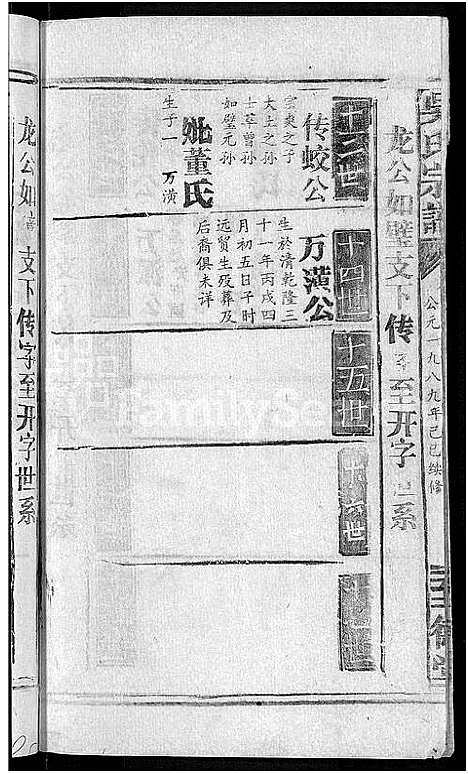 吴氏宗谱
公元一九八九年己巳续修
龙公如璧支下传字至开字世系
十三世
传蛟公
宗爽之子
大生之孙
士荜曾孙
如璧元孙
妣董氏
生子一 万潢
十四世
万潢公
生於清乾隆三
十一年丙戌四
月初五日子时
远贸生殁葬及
后裔俱未详
十五世
十六世
龙公如 支下传字至开字世系
FamilySe